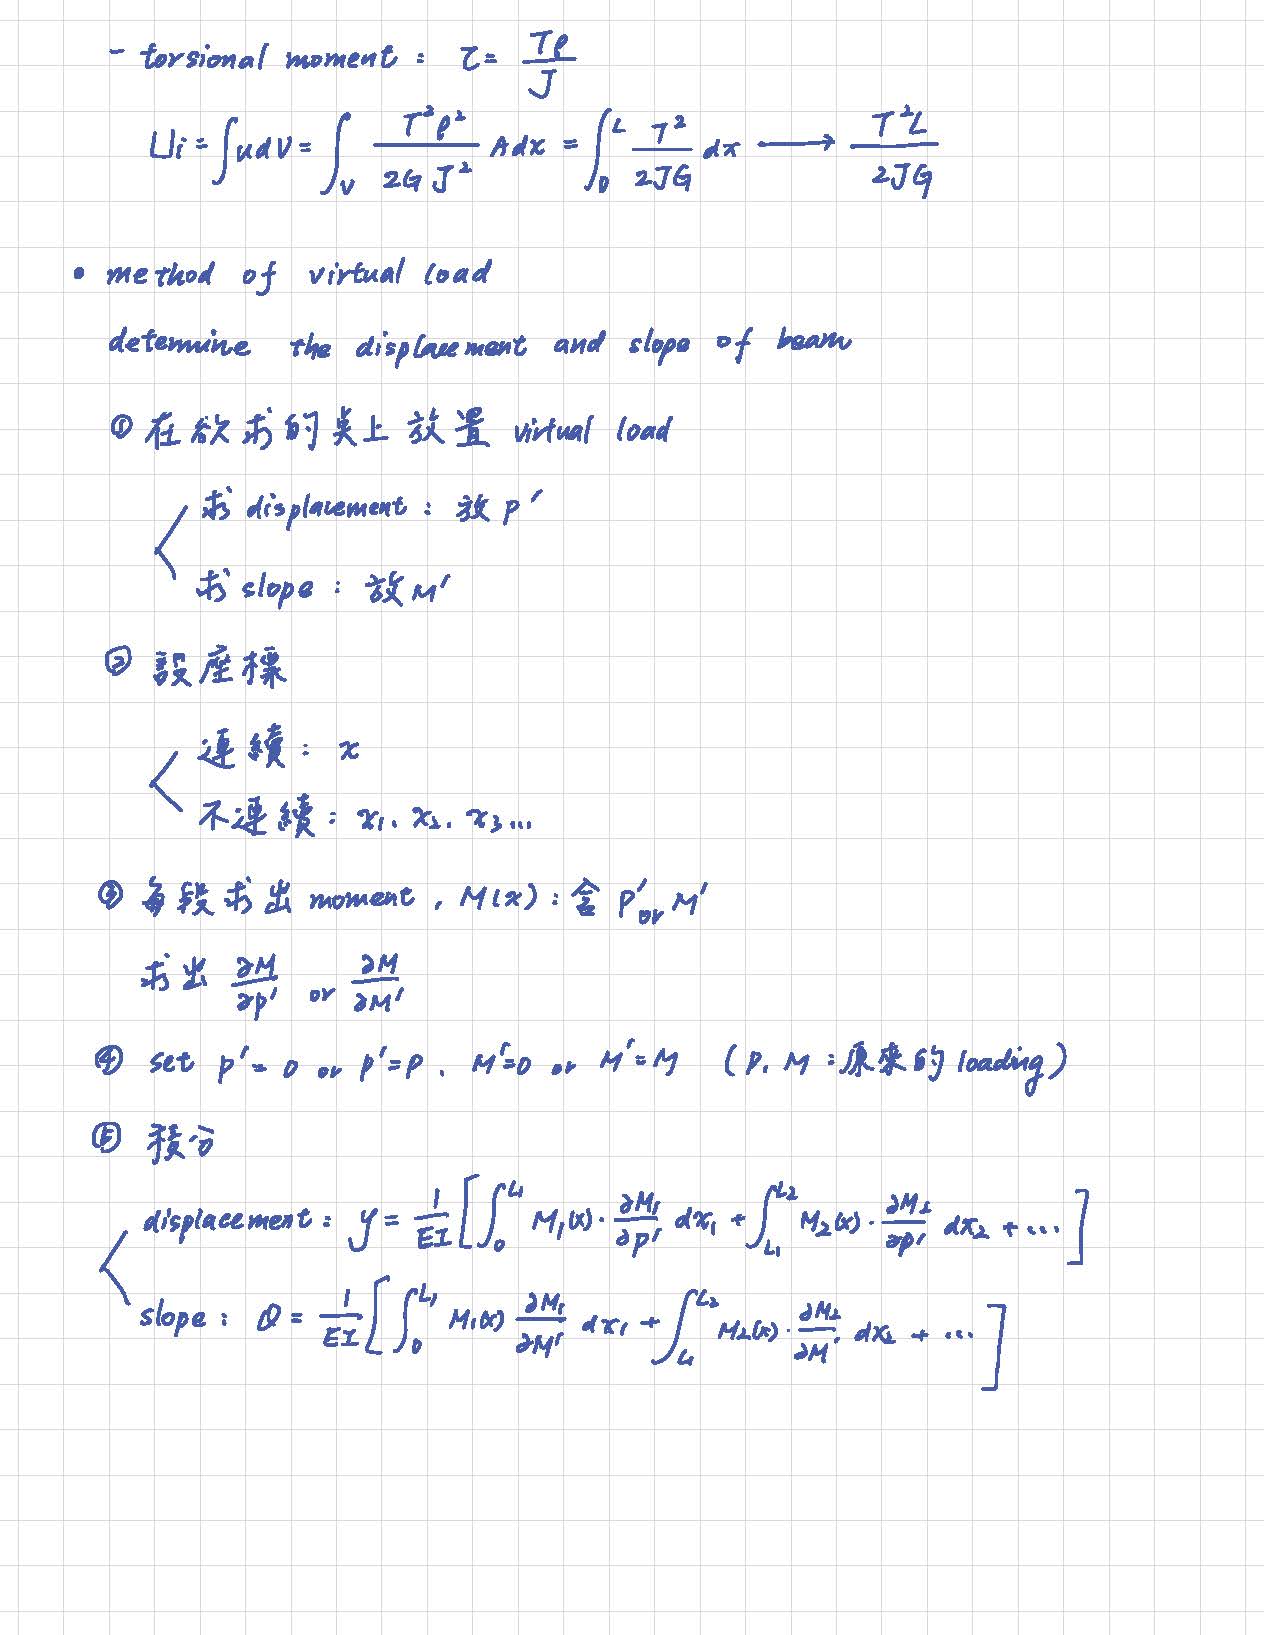 - torsional moment : τ = Tρ/J
Ui = ∫udV = ∫_V T²ρ²/2GJ² Adx = ∫_0^L T²/2JG dx ⟶ T²L/2JG
• method of virtual load
determine the displacement and slope of beam
① 在欲求的点上放置 virtual load
求 displacement : 放 P'
求 slope : 放 M'
② 設座標
連續 : x
不連續 : x₁、x₂、x₃...
③ 每段求出 moment , M(x) : 含 P' or M'
求出 ∂M/∂P' or ∂M/∂M'
④ set P' = 0 or P' = P 、 M' = 0 or M' = M (P、M : 原來的 loading)
⑤ 積分
displacement : y = 1/EI [ ∫_0^L₁ M₁(x) · ∂M₁/∂P' dx₁ + ∫_L₁^L₂ M₂(x) · ∂M₂/∂P' dx₂ + ... ]
slope : θ = 1/EI [ ∫_0^L₁ M₁(x) ∂M₁/∂M' dx₁ + ∫_L₁^L₂ M₂(x) · ∂M₂/∂M' dx₂ + ... ]